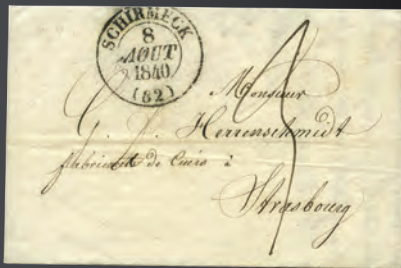 SCHIRMECK
8
AOUT
1840
(82)
Monsieur
G. F. Herrenschmidt
fabricant de Cuirs à
Strasbourg